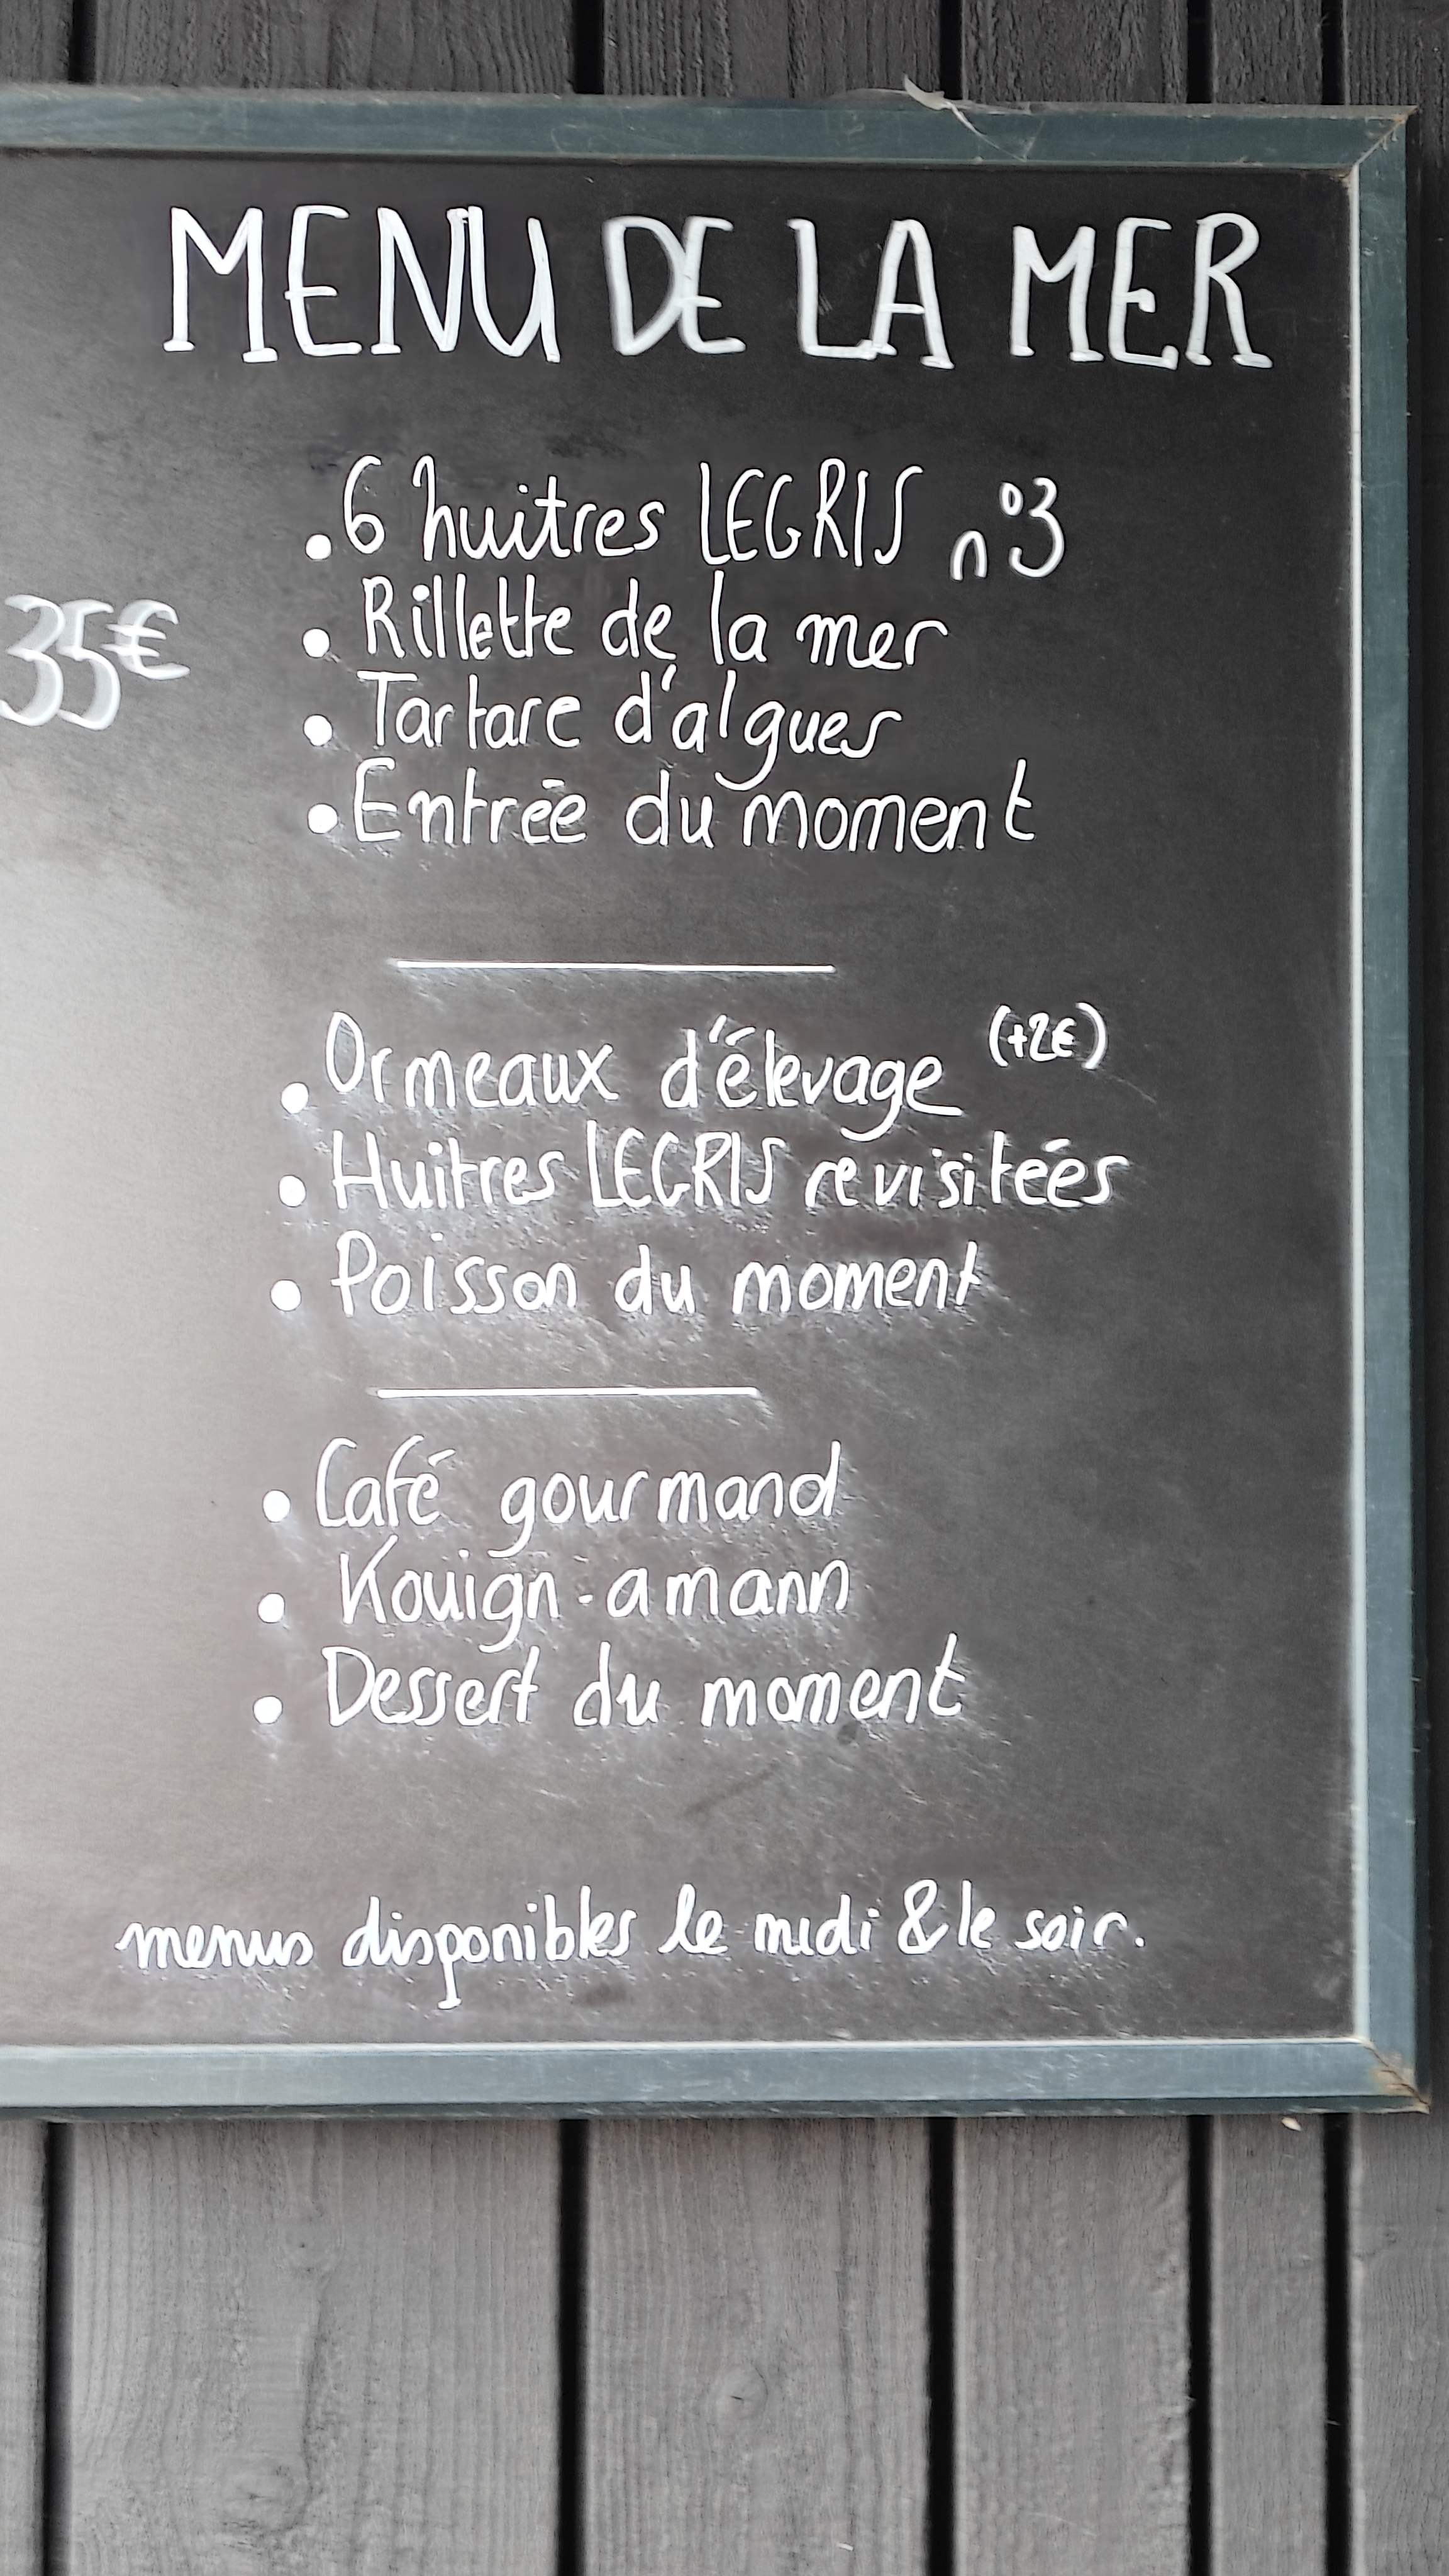 MENU DE LA MER
• 6 huitres LEGRIS n°3
35€
• Rillette de la mer
• Tartare d'algues
• Entrée du moment
• Ormeaux d'élevage (+2€)
• Huitres LEGRIS revisitées
• Poisson du moment
• Café gourmand
• Kouign-amann
• Dessert du moment
menus disponibles le midi & le soir.